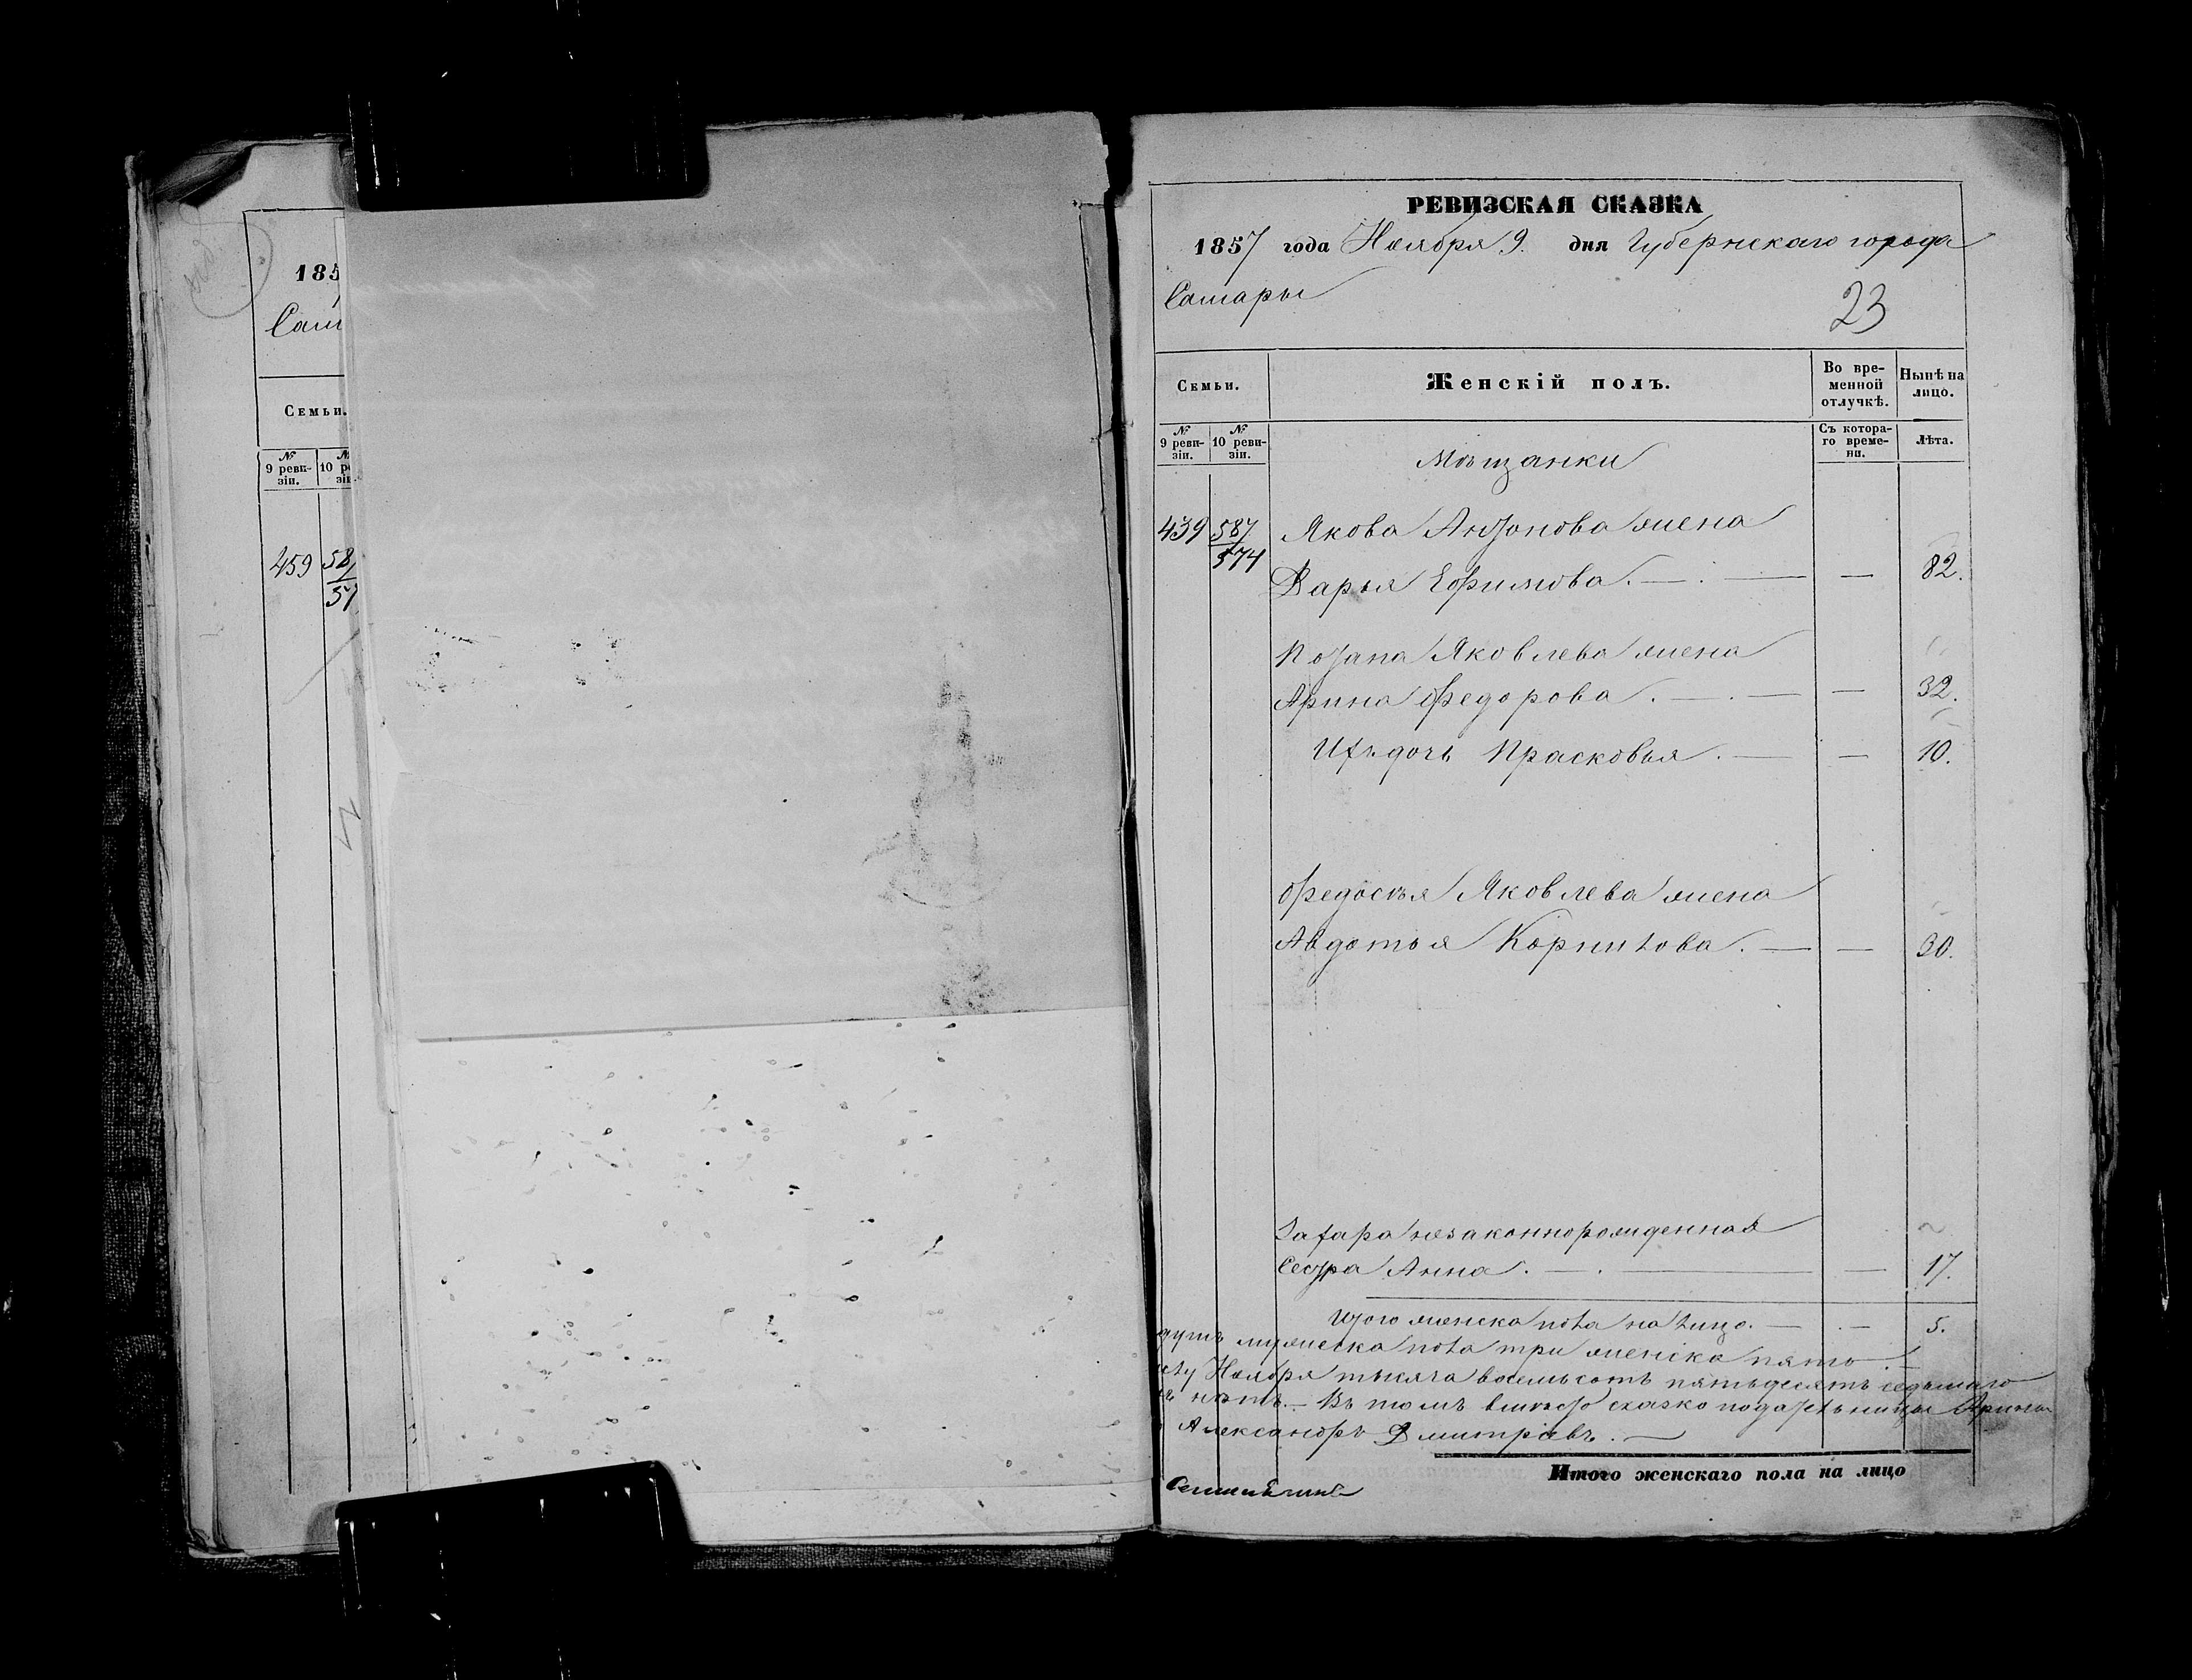 185
Сам
Семьи.
№
9 реви-
зіи.
10 ре
зіи
459
58
57
РЕВИЗСКАЯ СКАЗКА
1857 года Ноября 9. дня Губернскаго города
Самары
23
Семьи.
Женскій полъ.
Во вре-
менной
отлучкѣ.
Нынѣ на
лицо.
№
9 реви-
зіи.
№
10 реви-
зіи.
Съ котора-
го време-
ни.
Лѣта.
Мѣщанки
439 587 Якова Антонова жена
574
Дарья Ефимова. — — 82.
Потапа Яковлева жена
Арина Федорова. — — 32.
Ихъ дочь Прасковья. — — 10.
Федосѣя Яковлева жена
Авдотья Корнилова. — — 30.
Захара незаконнорожденная
Сестра Анна. — — 17.
Итого женска пола на лицо. — — 5.
душъ мужеска пола три женска пять. —
Ноября тысяча восемьсотъ пятьдесятъ седьмаго
нѣтъ. — Въ томъ вмѣсто сказко подательницы Арины
Александръ Дмитріевъ. —
Итого женскаго пола на лицо